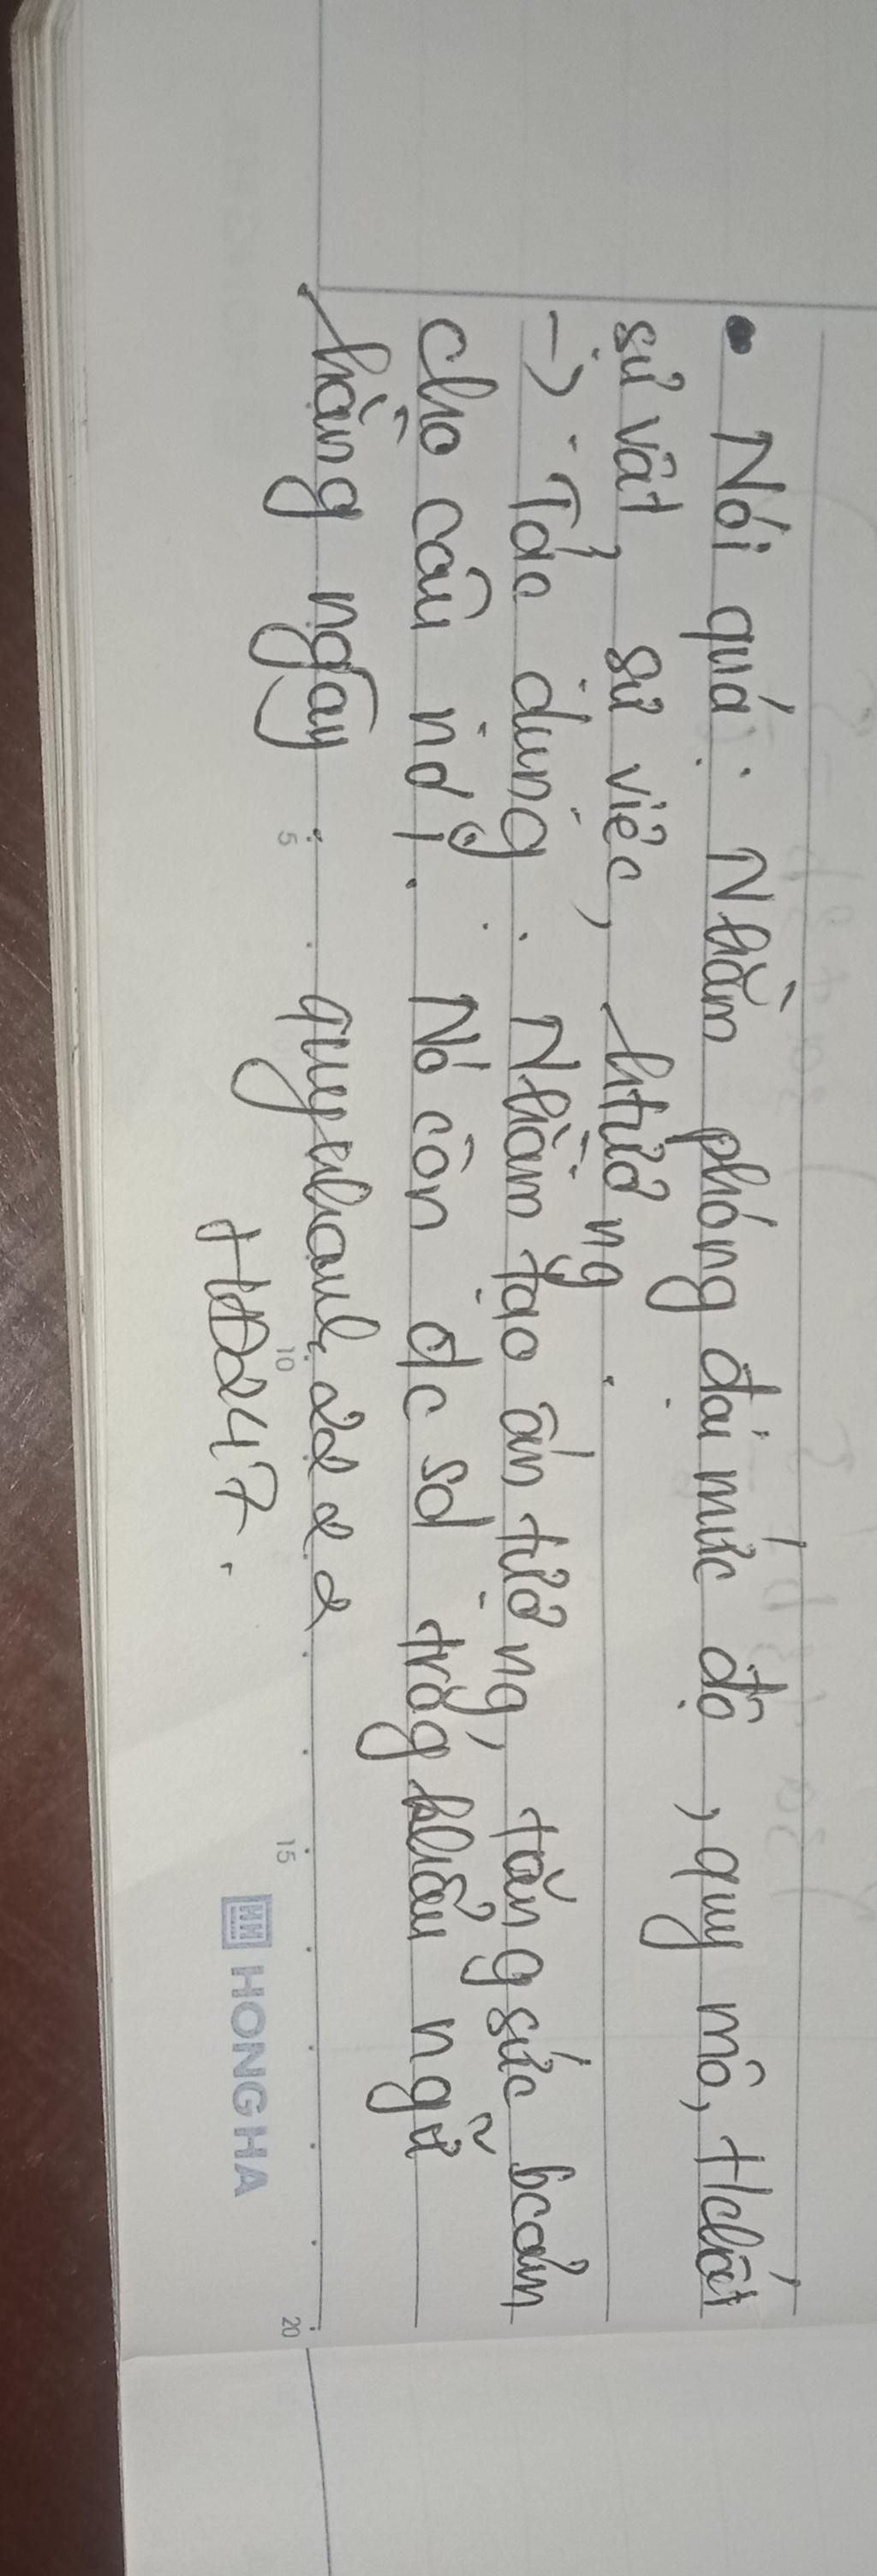 • Nói quá: Nhằm phóng đại mức độ, quy mô, t/chất
sự vật, sự việc, h/tượng.
-> Tác dụng: Nhằm tạo ấn tượng, tăng sức bcảm
cho câu nói. Nó còn dc sd trog khẩu ngữ
hằng ngày
quynhanh2222
HĐ247.
5 10 15 20
HONG HA